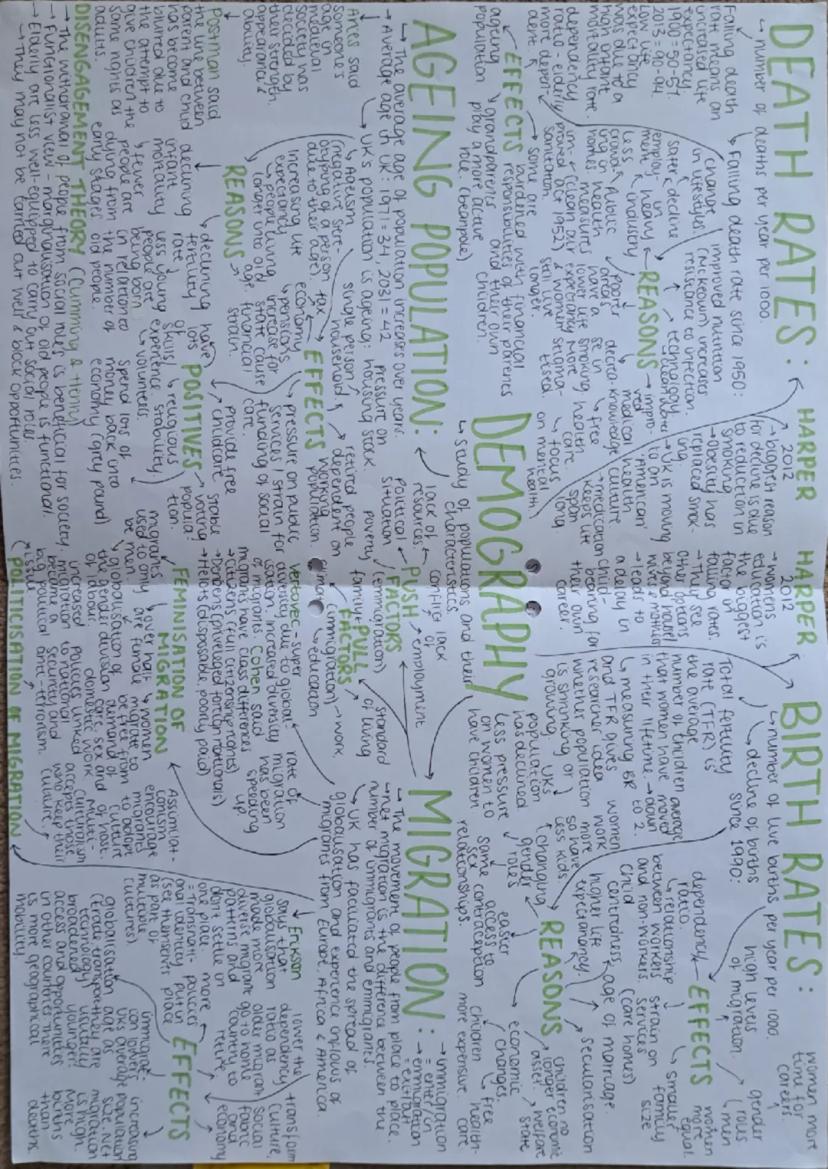 DEATH RATES:
↳ number of deaths per year per 1000.
Falling death
rate means an
increased life
expectancy
1900 = 50-57.
2013 = 90-94.
Low life
expectancy
was due to a
high infant
mortality rate.
↳ Falling death rate since 1950:
change
in lifestyles
improved nutrition
(McKeown) increases
resistance to infection.
safer
employ-
ment
decline
in
heavy
industry
REASONS
technology
less
crowded
homes
Public
health
measures
(clean air
act 1952)
sanitation.
poorer
areas
have a
lower life
expectancy
medical
knowledge
se in
smoking
more
women
stronger.
free
health
care.
→ medication
keeps life
span
long.
↳ focus
on mental
health
HARPER
2012
→ biggest reason
for decline is due
to reduction in
smoking.
→ obesity has
replaced smok-
ing.
→ UK is moving
to an
'American'
health
culture
dependency
ratio - elderly
more depen-
dent
EFFECTS
ageing
population
some are
burdened with financial
responsibilities of their parents
and their own
children.
grandparents
play a more active
role. (beanpole)
DEMOGRAPHY
↳ study of populations and their
characteristics
HARPER
2012
→ womens
education is
the biggest
factor in
falling rates.
→ They see
other options
beyond housewife
& mother
→ leads to
a delay in
child-
bearing for
their own
career.
BIRTH RATES:
↳ number of live births per year per 1000.
↳ decline of births
since 1990:
Total fertility
rate (TFR) is
the average
number of children
that women have
in their lifetime
average
moved
down
to 2.
↳ measuring BR
and TFR gives
researcher idea
whether population
is shrinking or
growing.
UK's
population
has declined
women
work
more
so have
less kids.
changing
gender
roles
less pressure
on women to
have children
REASONS
same
sex
relationships
easier
access to
contraception
economic
changes.
children
more expensive.
free
health-
care
welfare
state
children no
longer economic
asset
secularisation
age of marriage
higher life
expectancy.
child
centredness
dependency
ratio.
↳ relationship
between workers
and non-workers
EFFECTS
high levels
of migration.
gender
women
more
equal
smaller
family
size
strain on
services
(care homes)
women more
time for
careers
AGEING POPULATION:
↳ The average age of population increases over years.
→ Average age in UK: 1971 = 34, 2031 = 42
↳ UK's population is ageing:
Aries said
someone's
age in
medieval
society was
decided by
their strength,
appearance &
ability.
Ageism
(negative stere-
otyping of a person
due to their age)
single person
household
pressure on
housing stock
retired people
dependent on
working
population
EFFECTS
tax
economy
pensions
increase for
state cause
financial
strain.
pressure on public
services / strain for
funding of social
care.
increasing life
expectancy
↳ people living
longer into old
age.
REASONS
declining
infant
mortality
rate
↳ fewer
people are
dying from
early stages
declining
fertility
rate
less young
people are
being born
in relation to
the number of
old people.
Postman said
the line between
parent and child
has become
blurred due to
the attempt to
give children the
same rights as
adults.
POSITIVES
have
lots
of
skills
experience
↳ volunteers.
religious
stability
stable
popula-
tion.
voting
provide free
childcare
spend lots of
money back into
economy (grey pound)
DISENGAGEMENT THEORY (Cumming & Henry)
→ The withdrawal of people from social roles is beneficial for society.
→ Functionalist view - marginalisation of old people is functional.
→ Elderly are less well-equipped to carry out social roles
→ They may not be carried out well & block opportunities
MIGRATION:
→ immigration
= enter/in
→ emmigration
= exit/out
↳ The movement of people from place to place.
→ net migration is the difference between the
number of immigrants and emmigrants.
↳ UK has facilitated the spread of
globalisation and experience inflows of
migrants from Europe, Africa & America
PUSH
FACTORS
(emmigration)
lack of
resources
conflict
lack
of
employment
Political
situation
poverty
PULL
FACTORS
(immigration)
family
standard
of living
work
education
climate
Vertovec - super
diversity due to global-
isation, increased diversity
of migrants. Cohen said
migrants have class differences
→ Citizens (full citizenship rights)
→ Denizens (privileged foreign nationals)
→ Helots (disposable, poorly paid)
rate of
migration
has been
speeding
up
FEMINISATION OF
MIGRATION
migrants
used to only
be men
↳ over half
are female
↳ women
migrate to
be free from
↳ globalisation of
the gender division
of labour.
demand of
care, sex and
domestic work
Assimilat-
ionism
encourage
migrants
to adopt
culture
of host.
Multi-
culturalism
accepts those
who keep their
culture.
increased policies linked
migration to national
become a security and
political anti-terrorism.
issue
POLITICISATION OF MIGRATION
Erikson
says that
globalisation
made more
diverse migrant
patterns and
don't settle in
one place
= Transnati-
onal identity
(see themselves
as part of
multiple
cultures)
more
policies
put in
place
lower the
dependency
ratio as
older migrants
go to home
country to
retire.
transform
culture,
social
fabric
and
economy
EFFECTS
globalisation
(trade, transport,
technology)
broadened
access and opportunities
in other countries. There
is more geographical
mobility.
immigrati-
on lowers
UK's average
age as
they are
usually
younger
increasing
population
size. Net
migration
is high.
More
births
than
deaths